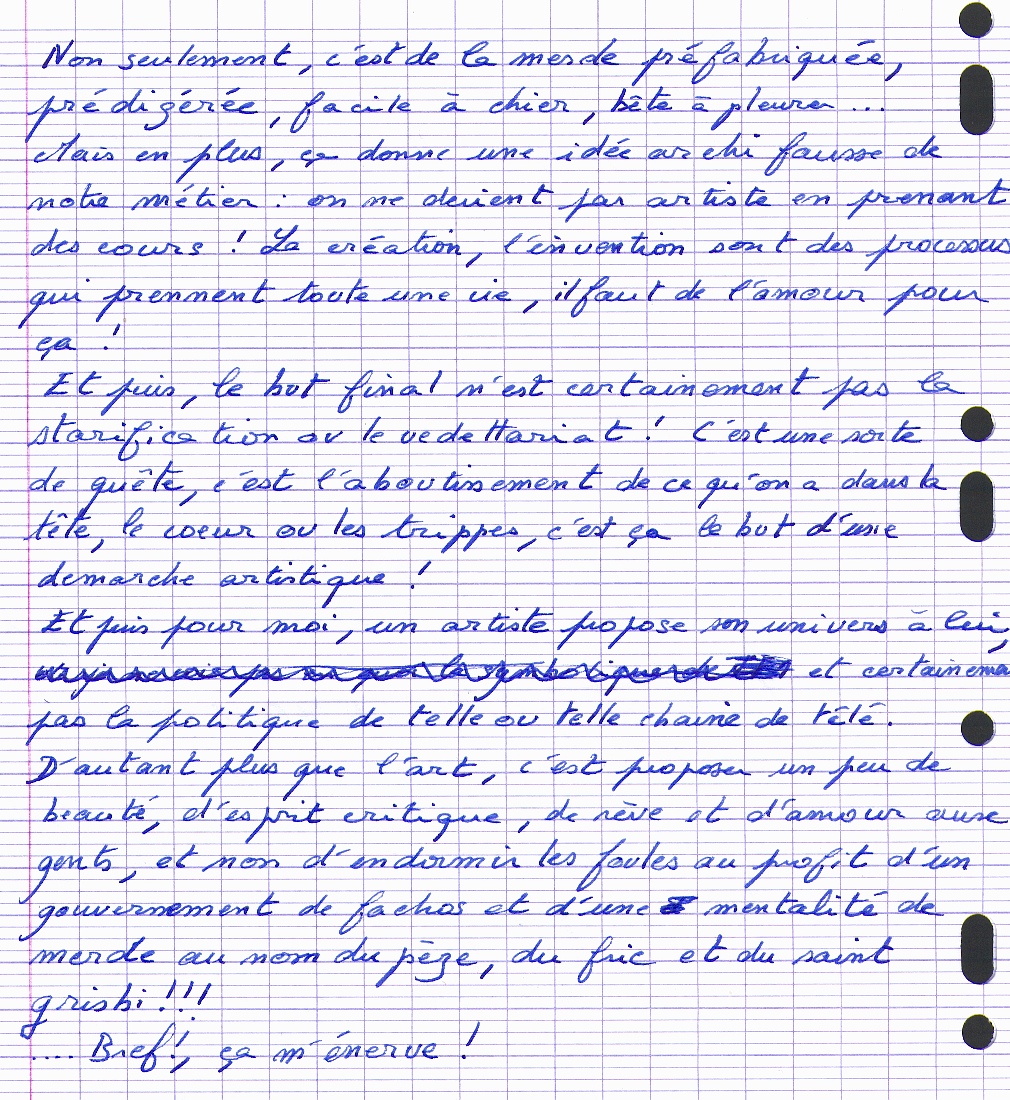 Non seulement, c'est de la merde préfabriquée,
prédigérée, facile à chier, bête à pleurer ...
Mais en plus, ça donne une idée archi fausse de
notre métier : on ne devient pas artiste en prenant
des cours ! La création, l'invention sont des processus
qui prennent toute une vie, il faut de l'amour pour
ça !
Et puis, le but final n'est certainement pas la
starification ou le vedettariat ! C'est une sorte
de quête, c'est l'aboutissement de ce qu'on a dans la
tête, le coeur ou les trippes, c'est ça le but d'une
demarche artistique !
Et puis pour moi, un artiste propose son univers à lui,
et certainema
pas la politique de telle ou telle chaine de télé.
D'autant plus que l'art, c'est proposer un peu de
beauté, d'esprit critique, de rêve et d'amour aux
gents, et non d'endormir les foules au profit d'un
gouvernement de fachos et d'une mentalité de
merde au nom du pèze, du fric et du saint
grisbi !!!
.... Bref !, ça m'énerve !